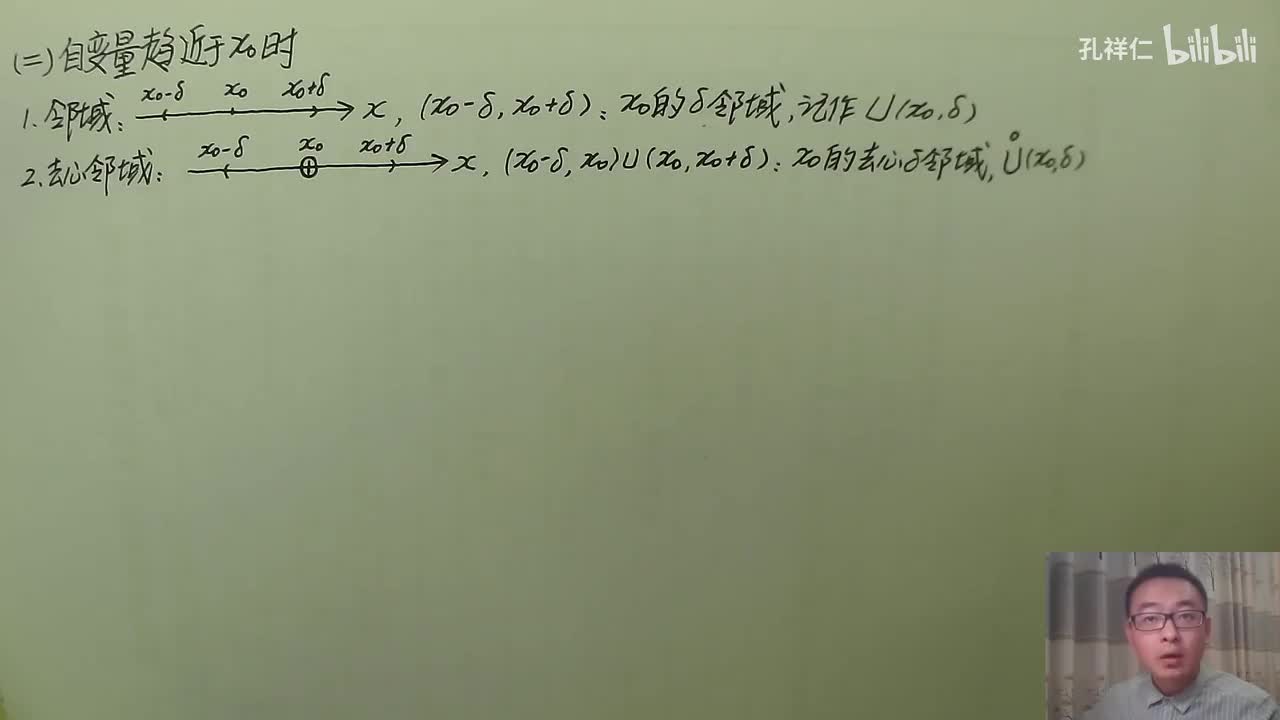 孔祥仁 bilibili
(二)自变量趋近于x₀时
x₀-δ x₀ x₀+δ
1.邻域: x, (x₀-δ, x₀+δ): x₀的δ邻域,记作U(x₀,δ)
x₀-δ x₀ x₀+δ
2.去心邻域: x, (x₀-δ, x₀)∪(x₀, x₀+δ): x₀的去心δ邻域, Ů(x₀,δ)